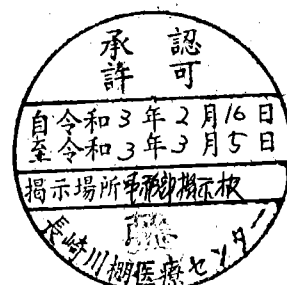 承認
許可
自令和3年2月16日
至令和3年3月5日
掲示場所事務部掲示板
長崎川棚医療センター